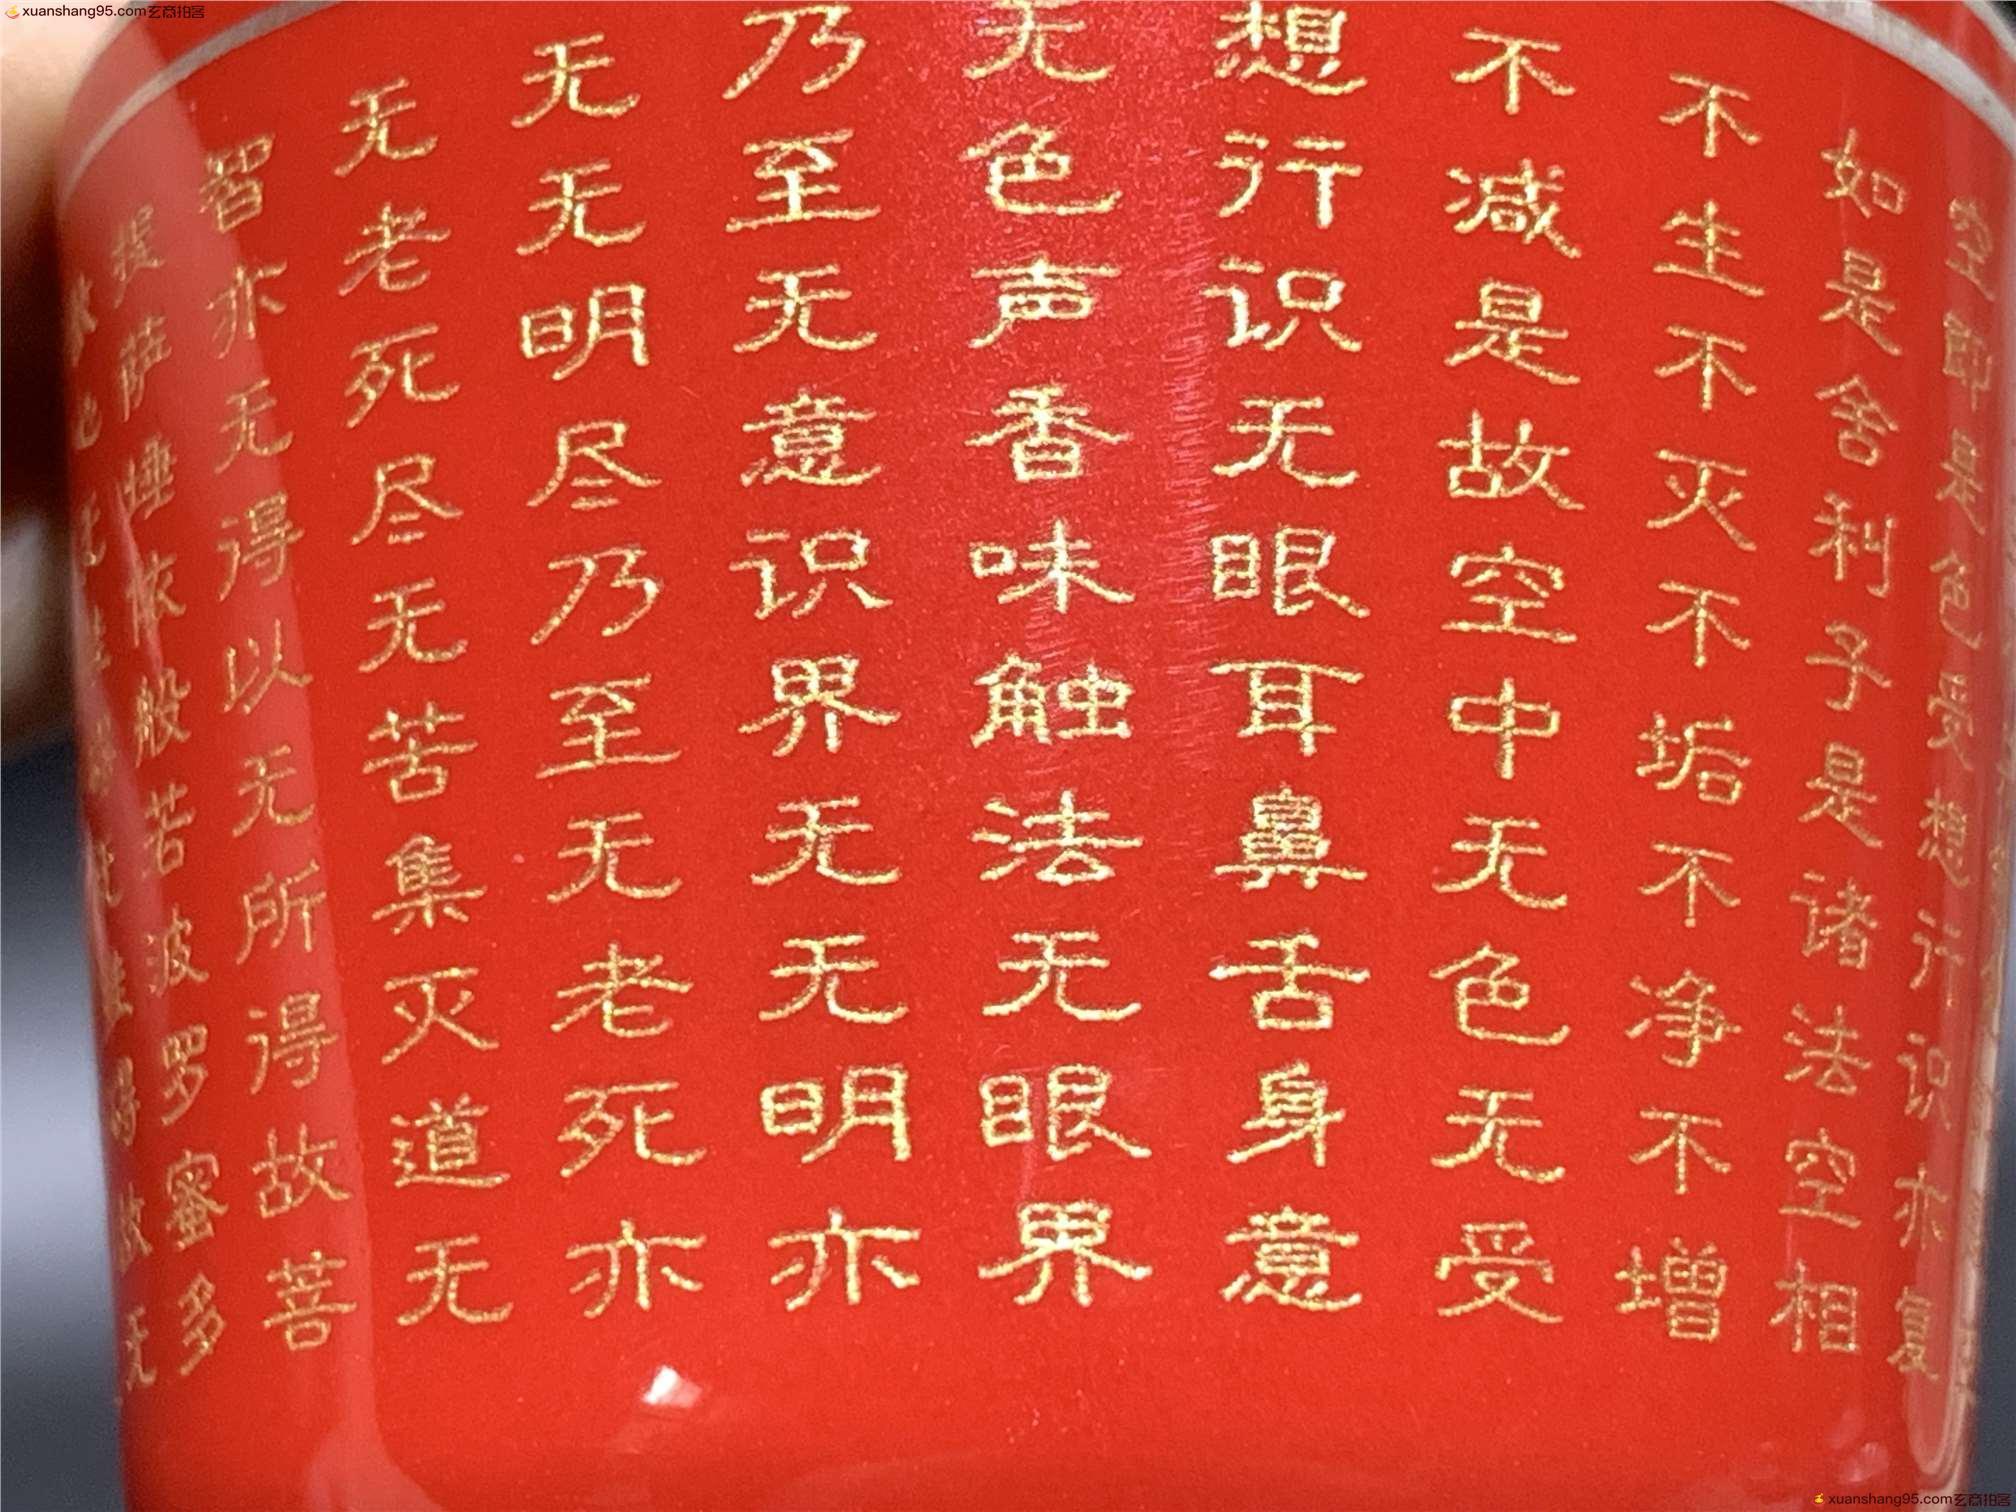 xuanshang95.com玄商拍客
空即是色受想行识亦复
如是舍利子是诸法空相
不生不灭不垢不净不增
不减是故空中无色无受
想行识无眼耳鼻舌身意
无色声香味触法无眼界
乃至无意识界无无明亦
无无明尽乃至无老死亦
无老死尽无苦集灭道无
智亦无得以无所得故菩
提萨埵依般若波罗蜜多
xuanshang95.com玄商拍客